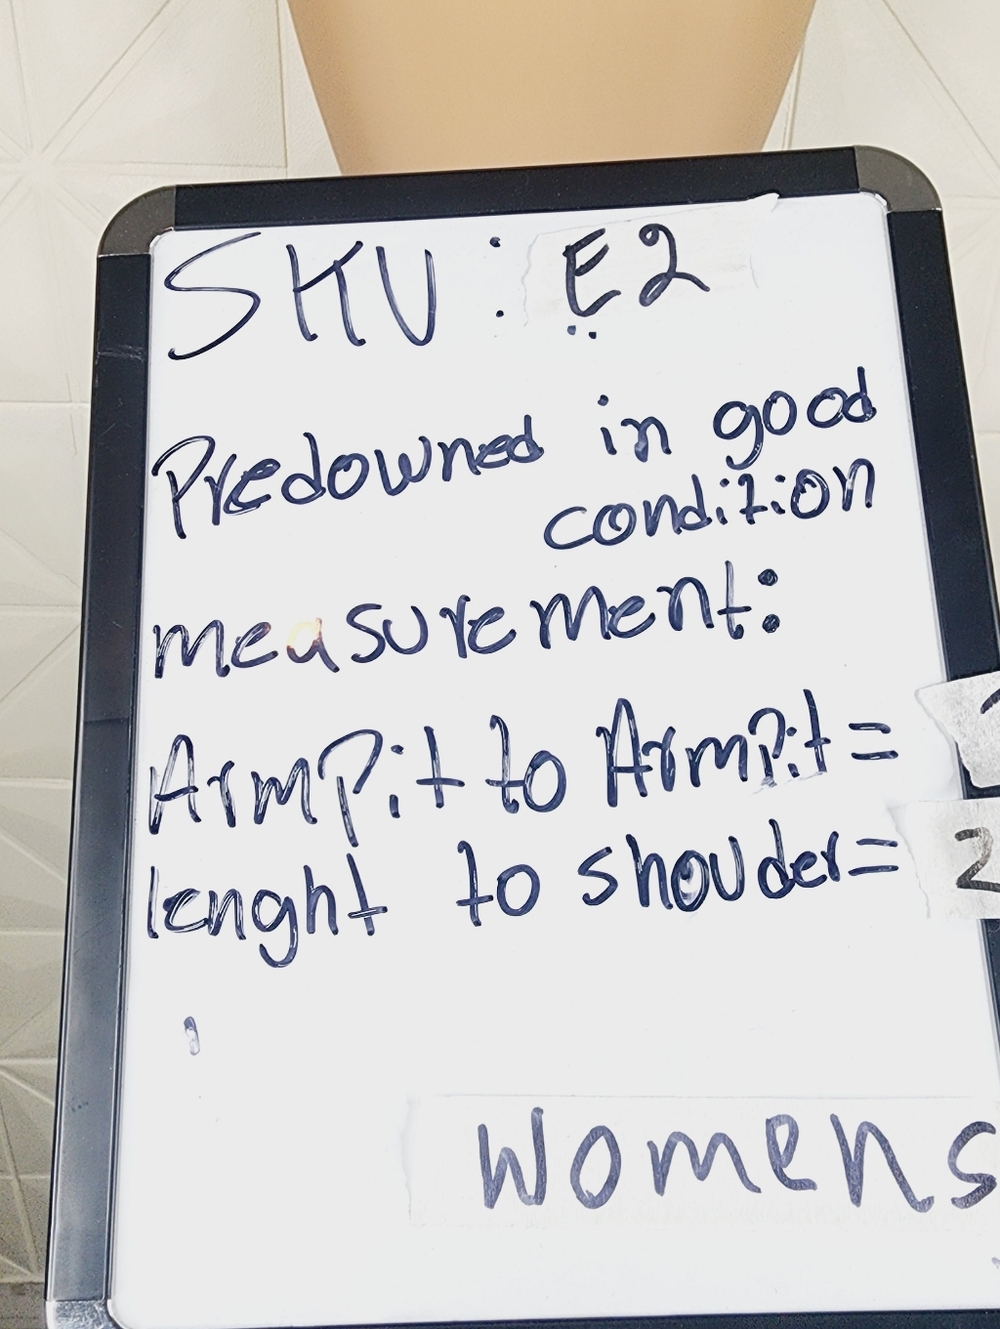 SKU : E2
Predowned in good
condition
measurement:
ArmPit to ArmPit =
lenght to shouder= 2
Womens